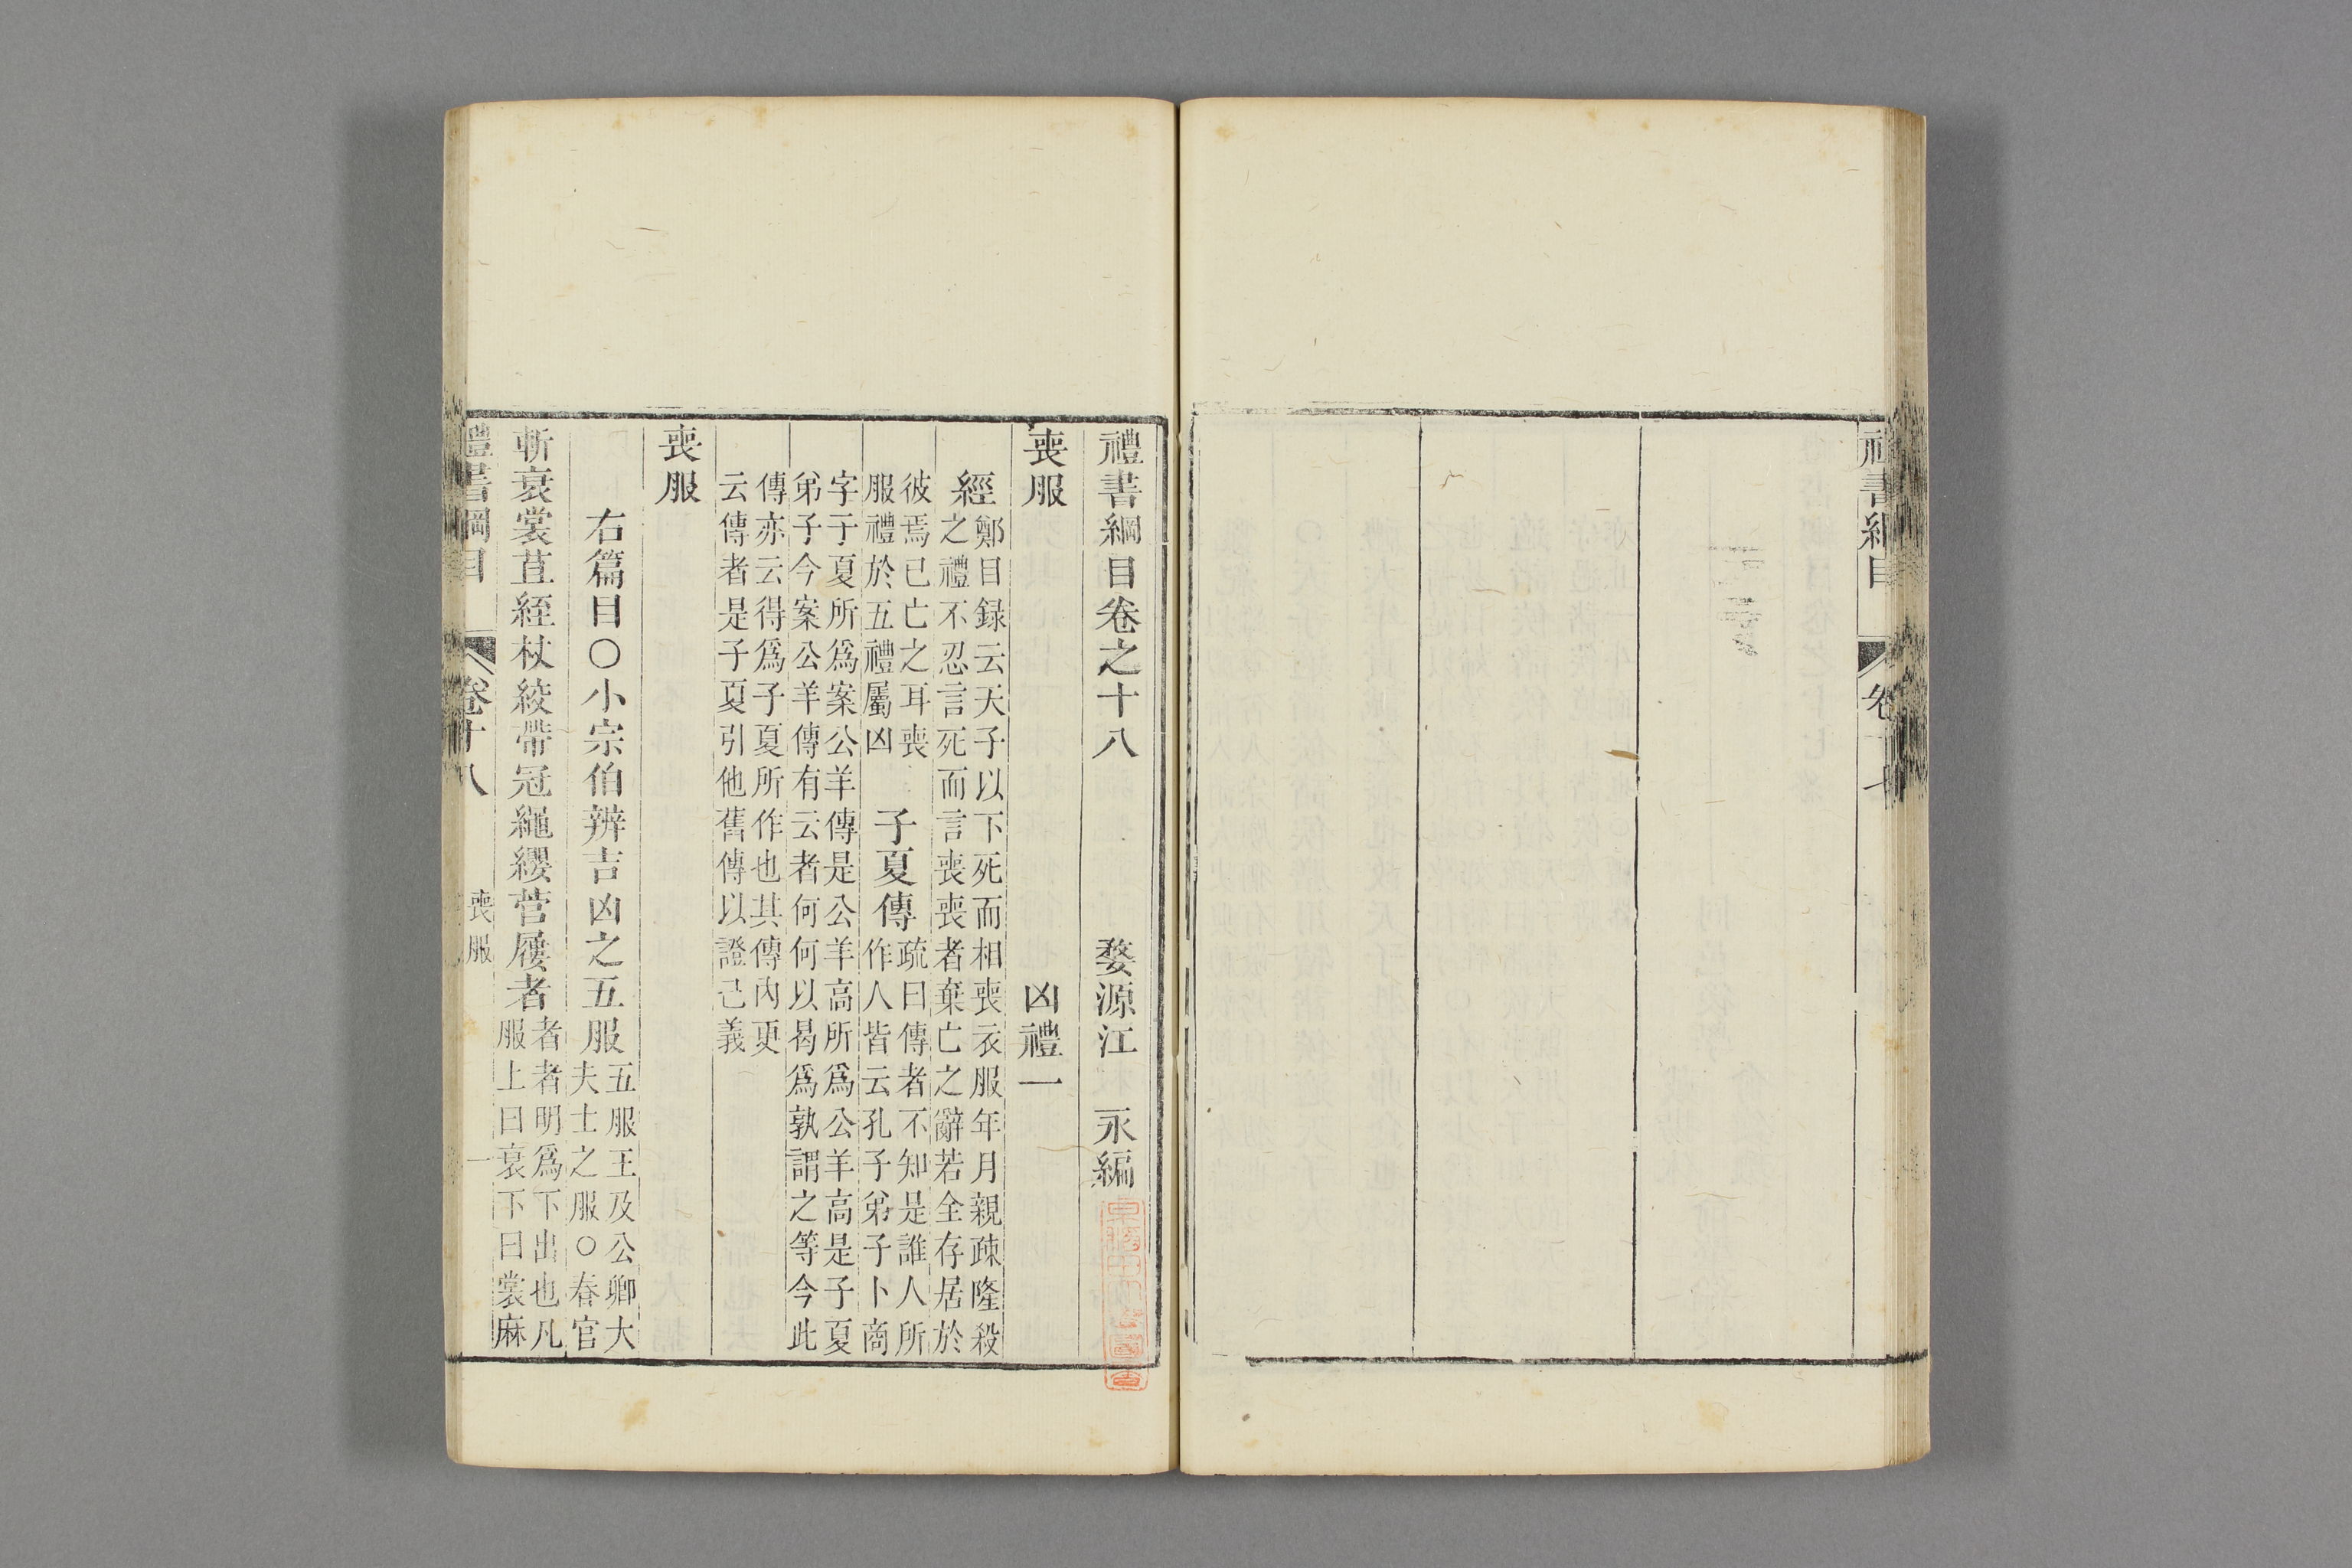 禮書綱目
卷十七
禮書綱目卷之十八
婺源江 永編
喪服 凶禮一
經鄭目録云天子以下死而相喪衣服年月親疎隆殺
之禮不忍言死而言喪喪者棄亡之辭若全存居於
彼焉已亡之耳喪
服禮於五禮屬凶
子夏傳疏曰傳者不知是誰人所
作人皆云孔子弟子卜商
字于夏所爲案公羊傳是公羊高所爲公羊高是子夏
弟子今案公羊傳有云者何何以曷爲孰謂之等今此
傳亦云得爲子夏所作也其傳內更
云傳者是子夏引他舊傳以證己義
喪服
右篇目〇小宗伯辨吉凶之五服五服王及公卿大
夫士之服〇春官
斬衰裳苴絰杖絞帶冠繩纓菅屨者者者明爲下出也凡
服上曰衰下曰裳麻
禮書綱目
卷十八
喪服
一